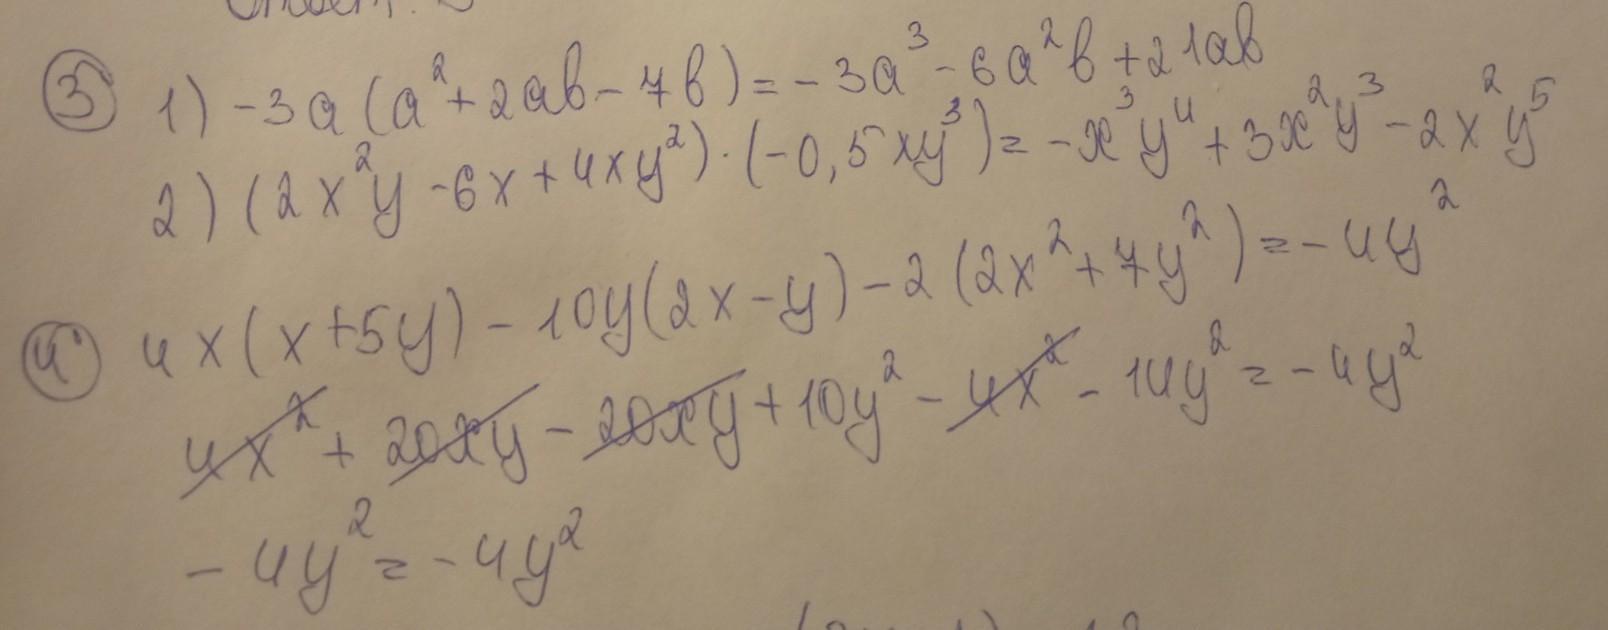 Ответ:
③ 1) -3a(a²+2ab-7b)=-3a³-6a²b+21ab
2) (2x²y-6x+4xy²)·(-0,5xy³)=-x³y⁴+3x²y³-2x²y⁵
④ 4x(x+5y)-10y(2x-y)-2(2x²+7y²)=-4y²
4x²+20xy-20xy+10y²-4x²-14y²=-4y²
-4y²=-4y²